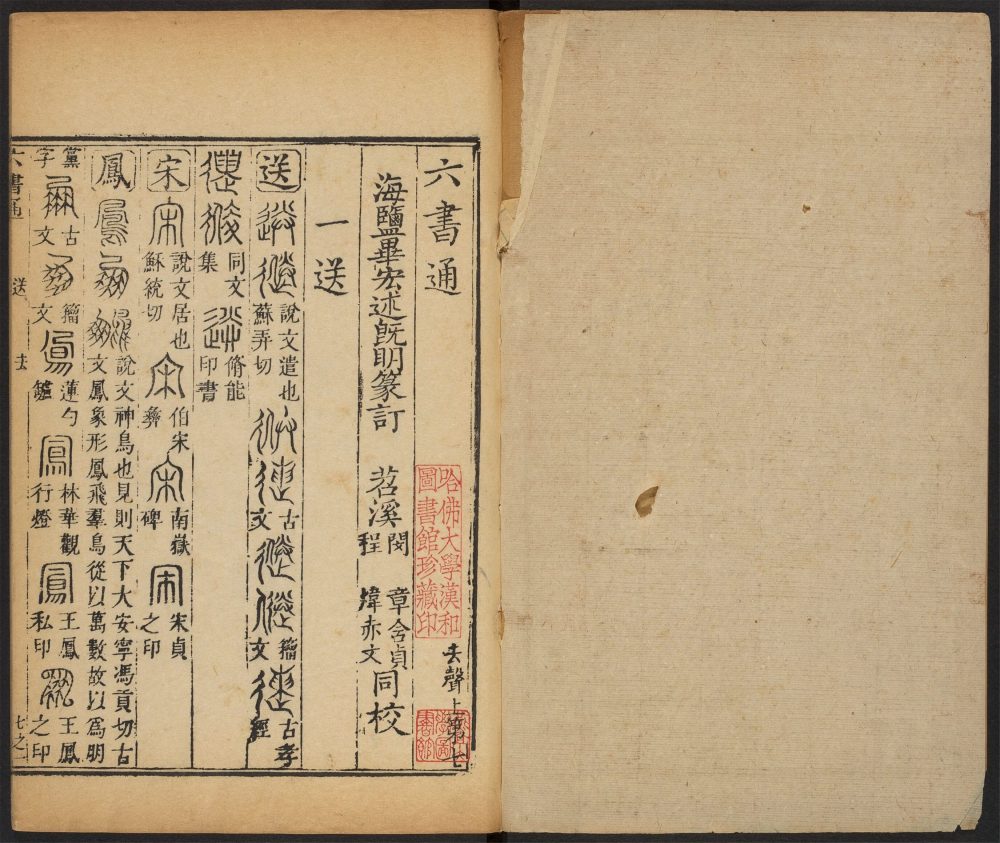 六書通
去聲上第七
哈佛大學漢和
圖書館珍藏印
海鹽畢宏述既明篆訂
苕溪
閔章含貞
程煒赤文
同校
一送
送
說文遣也
蘇弄切
古文
籀文
古孝經
同文集
脩能印書
宋
說文居也
蘇統切
伯宋彝
南嶽碑
宋貞之印
鳳
說文神鳥也見則天下大安寧馮貢切古
文鳳象形鳳飛羣鳥從以萬數故以為明
黨字
古文
籀文
蓮勺鑪
林華觀行燈
王鳳私印
王鳳之印
六書通
送
去
七之一